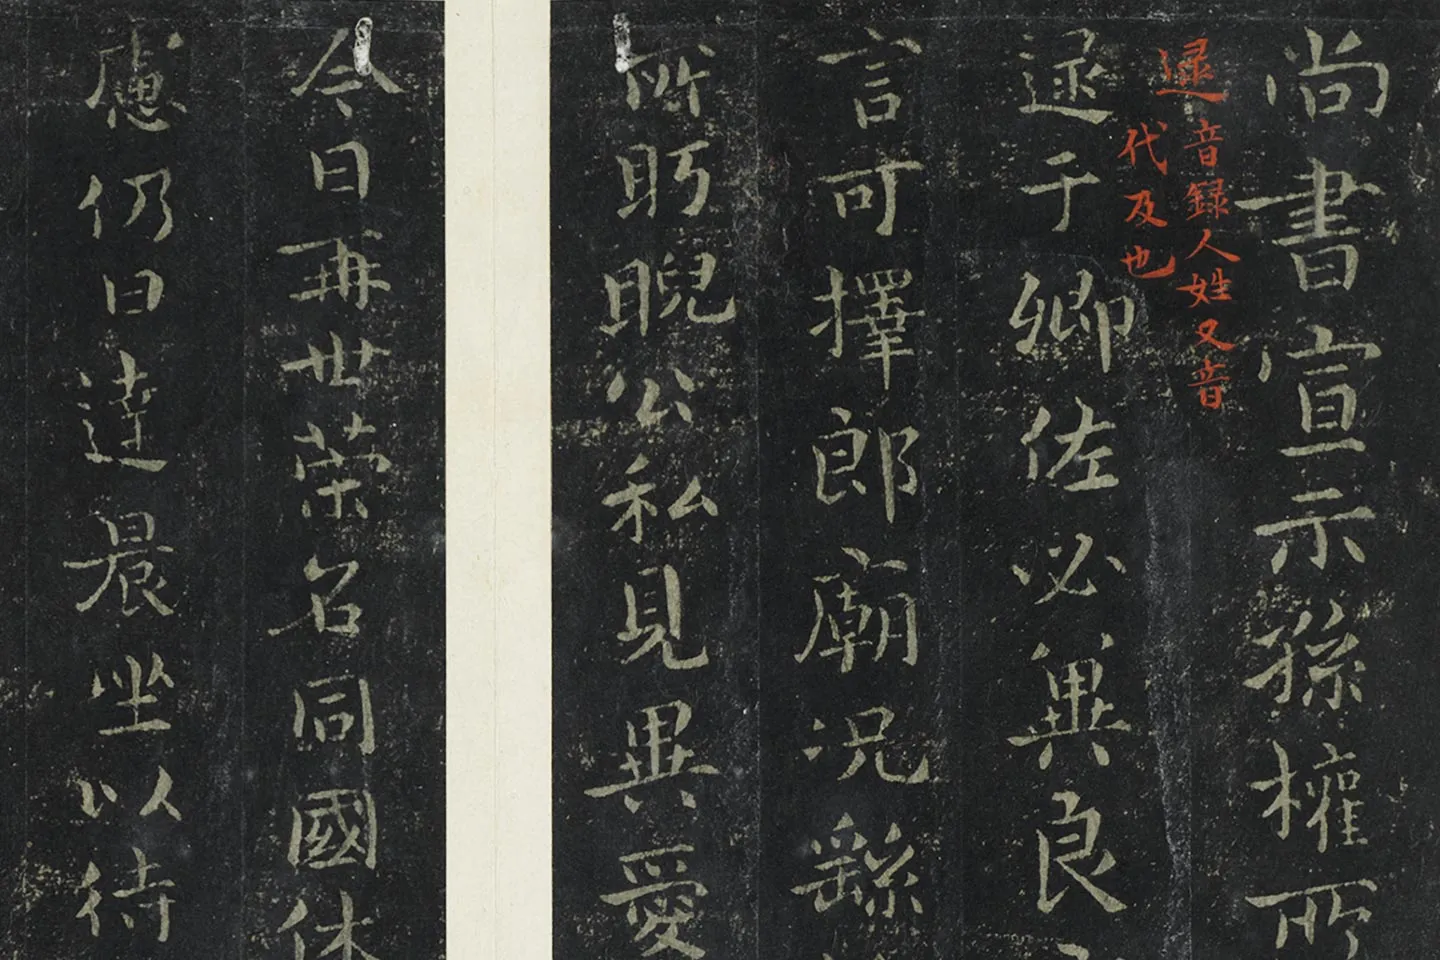 尚書宣示孫權所
逯音録人姓又音
代及也
逯于卿佐必冀良
言可擇郎廟況繇
所眄睨公私見異愛
今日再世榮名同國休
慮仍日達晨坐以待